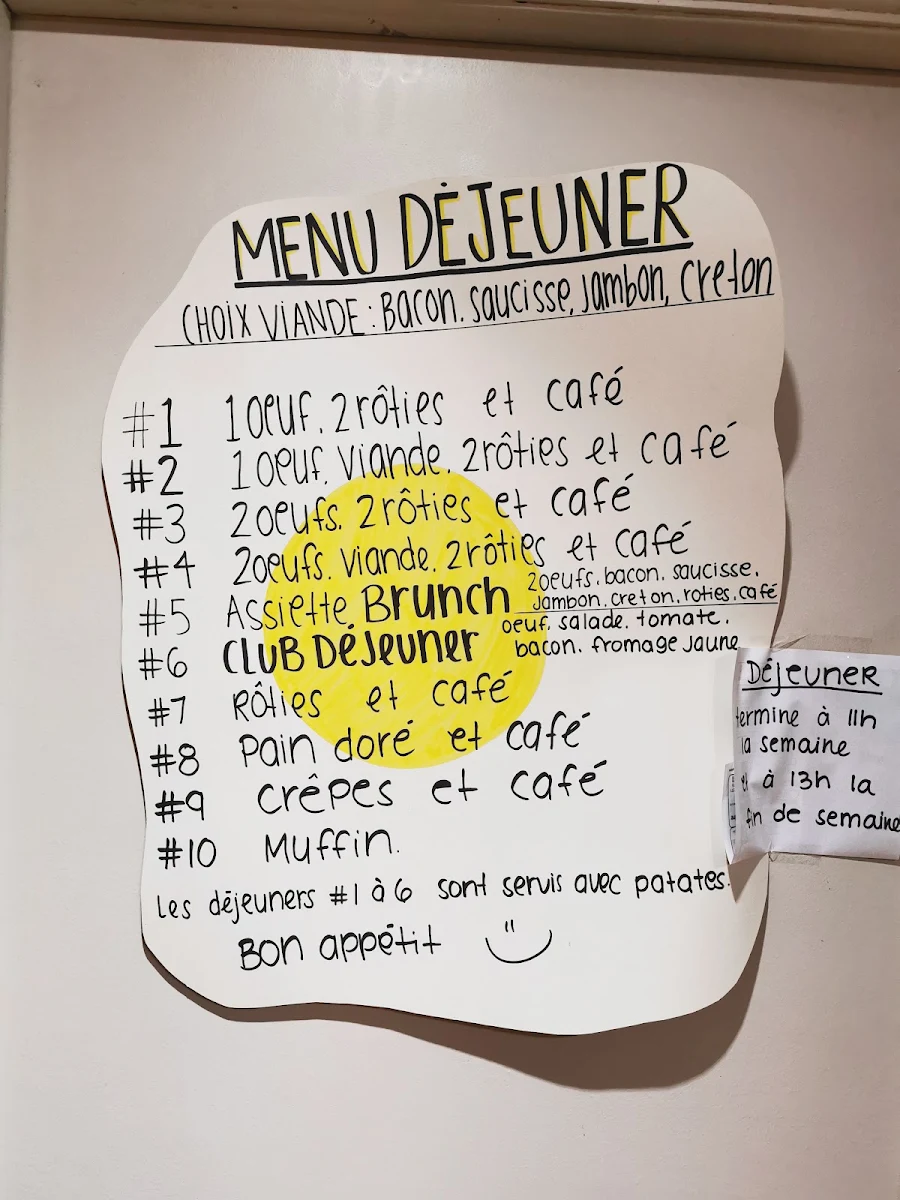 MENU DÉJEUNER
CHOIX VIANDE : Bacon. saucisse, jambon, creton
#1 1 oeuf. 2 rôties et café
#2 1 oeuf. viande. 2 rôties et café
#3 2 oeufs. 2 rôties et café
#4 2 oeufs. viande. 2 rôties et café
#5 Assiette Brunch 2 oeufs. bacon. saucisse.
jambon. creton. roties. café
#6 CLUB DéJeuner oeuf. salade. tomate.
bacon. fromage jaune
#7 Rôties et café
#8 Pain doré et café
#9 crêpes et café
#10 Muffin.
Les déjeuners #1 à 6 sont servis avec patates.
Bon appétit
Déjeuner
termine à 11h
la semaine
et à 13h la
fin de semaine